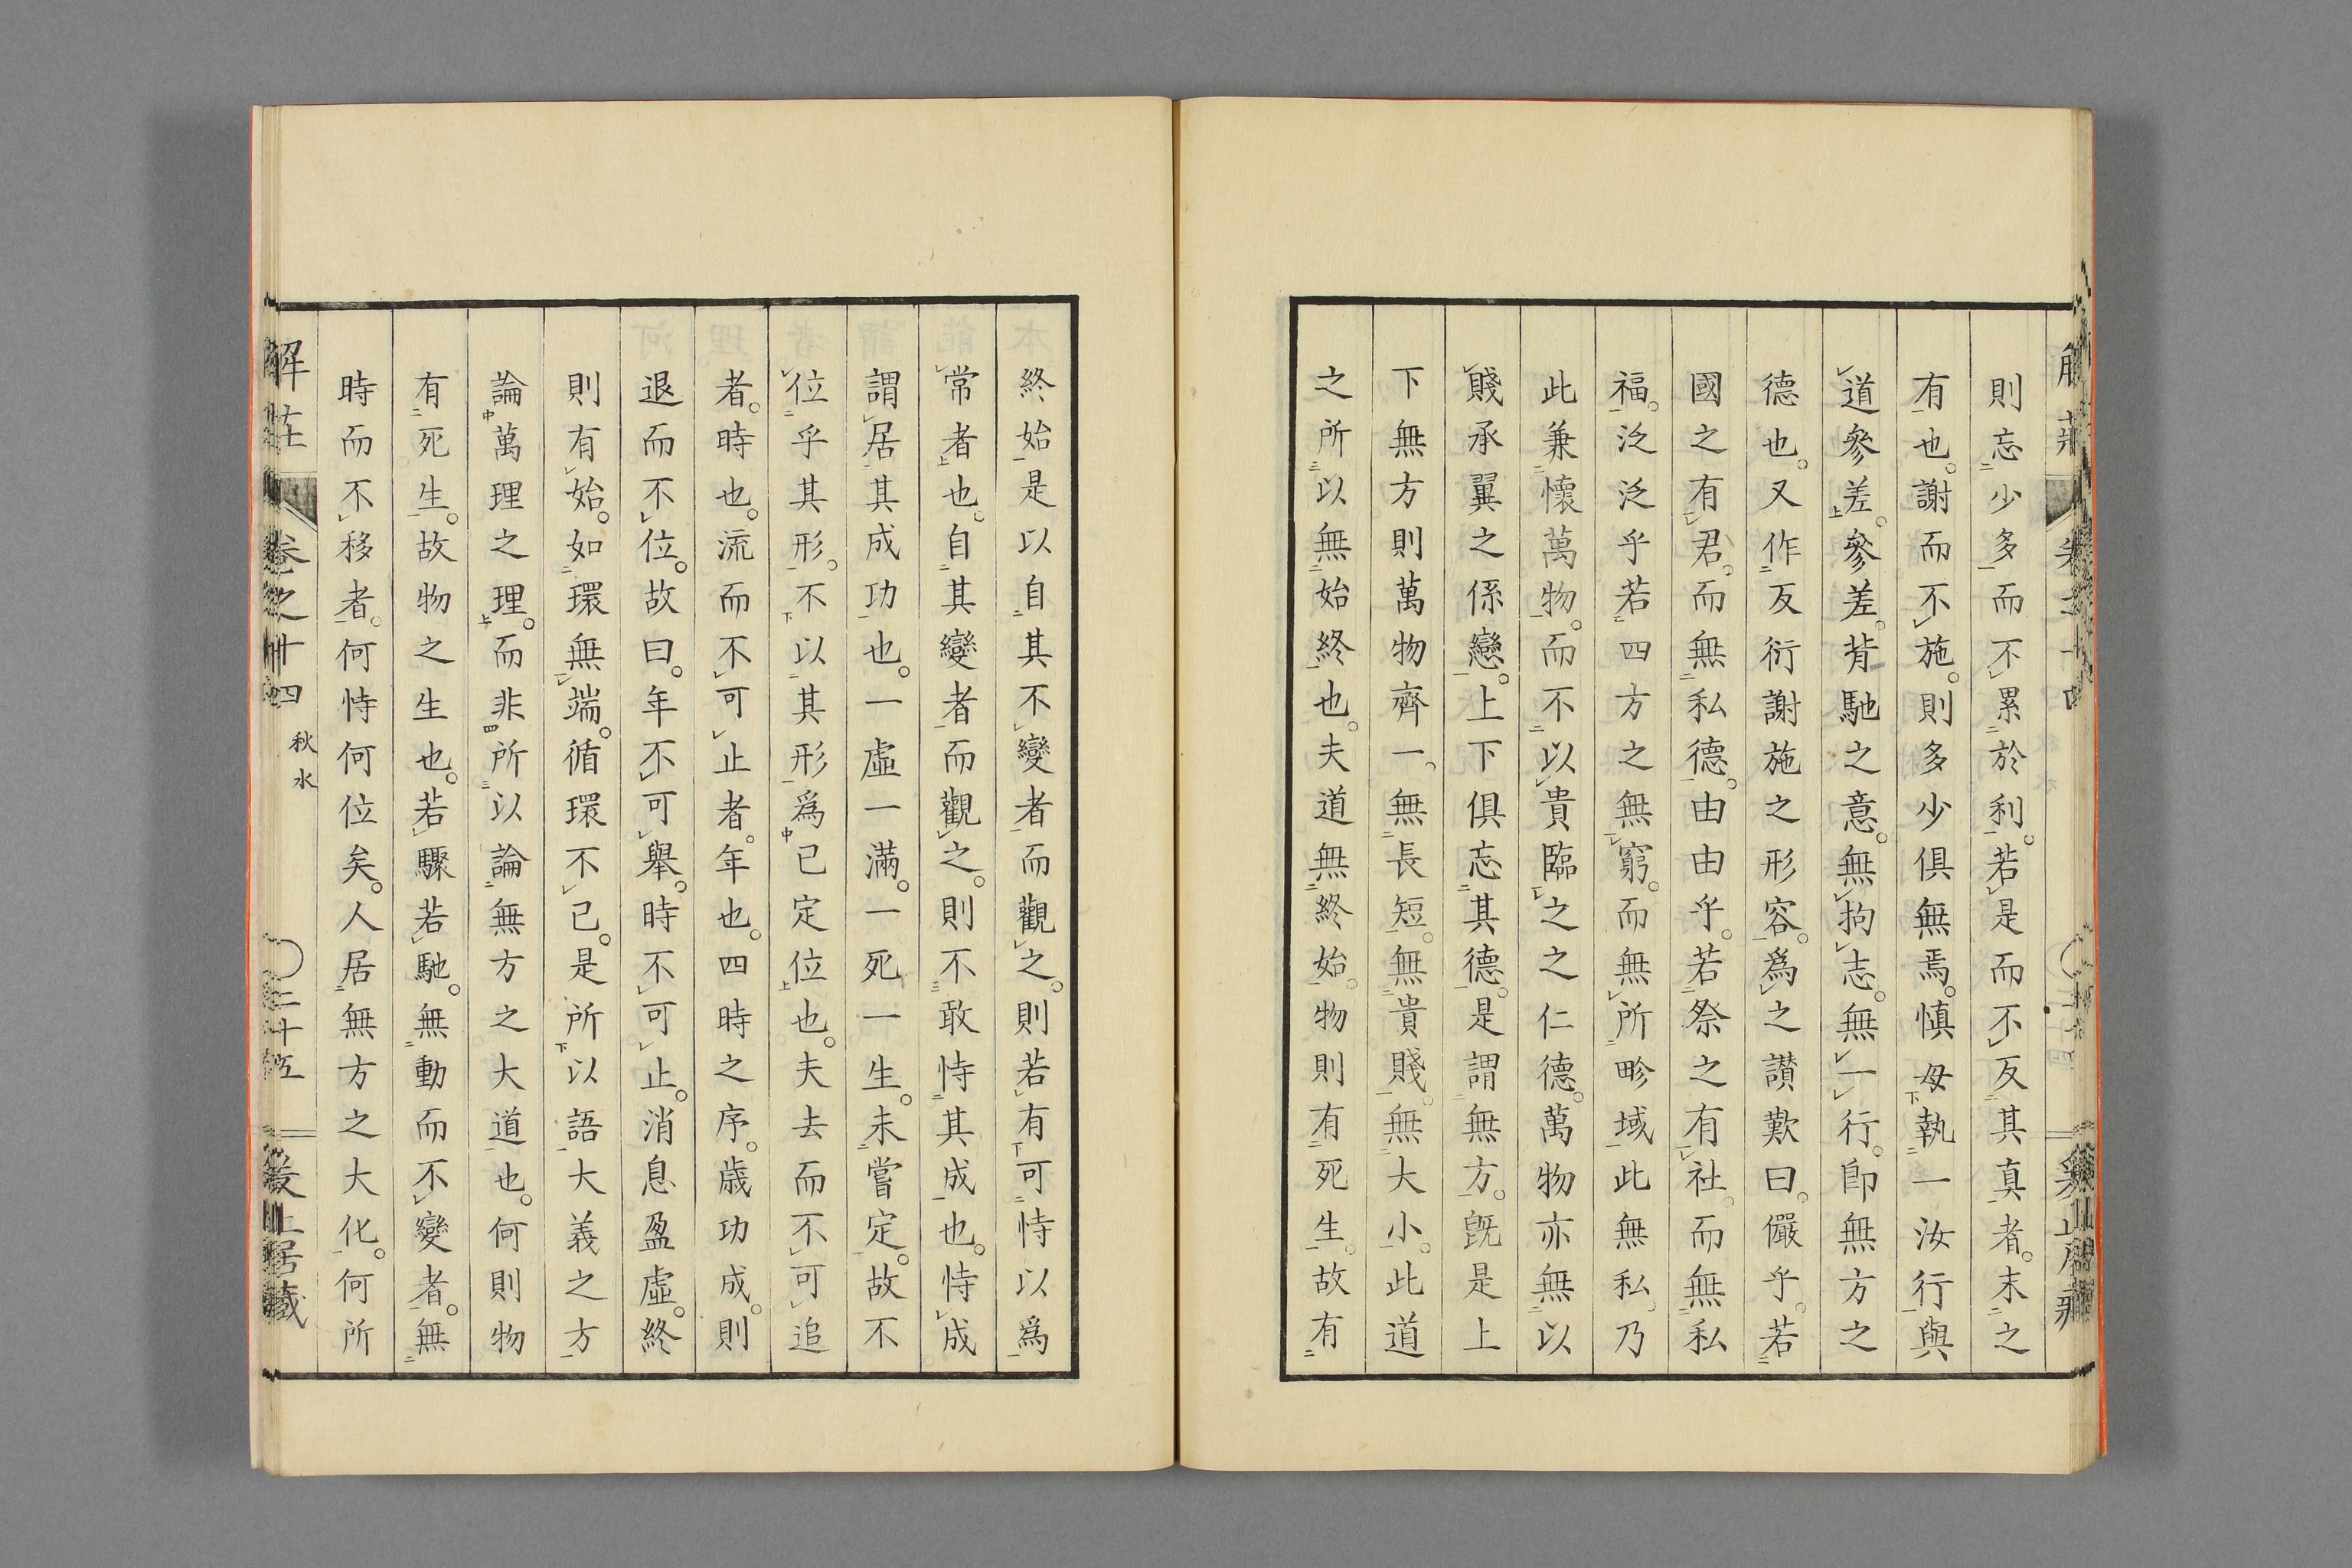 則忘少多而不累於利。若是而不反其真者。末之
有也。謝而不施。則多少俱無焉。慎毋執一汝行與
道參差。參差。背馳之意。無拘志。無一行。即無方之
德也。又作反衍謝施之形容。爲之讃歎曰。儼乎。若
國之有君。而無私德。由由乎。若祭之有社。而無私
福。泛泛乎若四方之無窮。而無所畛域此無私。乃
此兼懷萬物。而不以貴臨之之仁德。萬物亦無以
賤承翼之係戀。上下俱忘其德。是謂無方。既是上
下無方則萬物齊一。無長短。無貴賤。無大小。此道
之所以無始終也。夫道無終始。物則有死生。故有
終始是以自其不變者而觀之。則若有可恃以爲
常者也。自其變者而觀之。則不敢恃其成也。恃成
謂居其成功也。一虛一滿。一死一生。未嘗定。故不
位乎其形。不以其形爲已定位也。夫去而不可追
者。時也。流而不可止者。年也。四時之序。歳功成。則
退而不位。故曰。年不可舉。時不可止。消息盈虛。終
則有始。如環無端。循環不已。是所以語大義之方
論萬理之理。而非所以論無方之大道也。何則物
有死生。故物之生也。若驟若馳。無動而不變者。無
時而不移者。何恃何位矣。人居無方之大化。何所
解莊 卷之十四 秋水 二十五